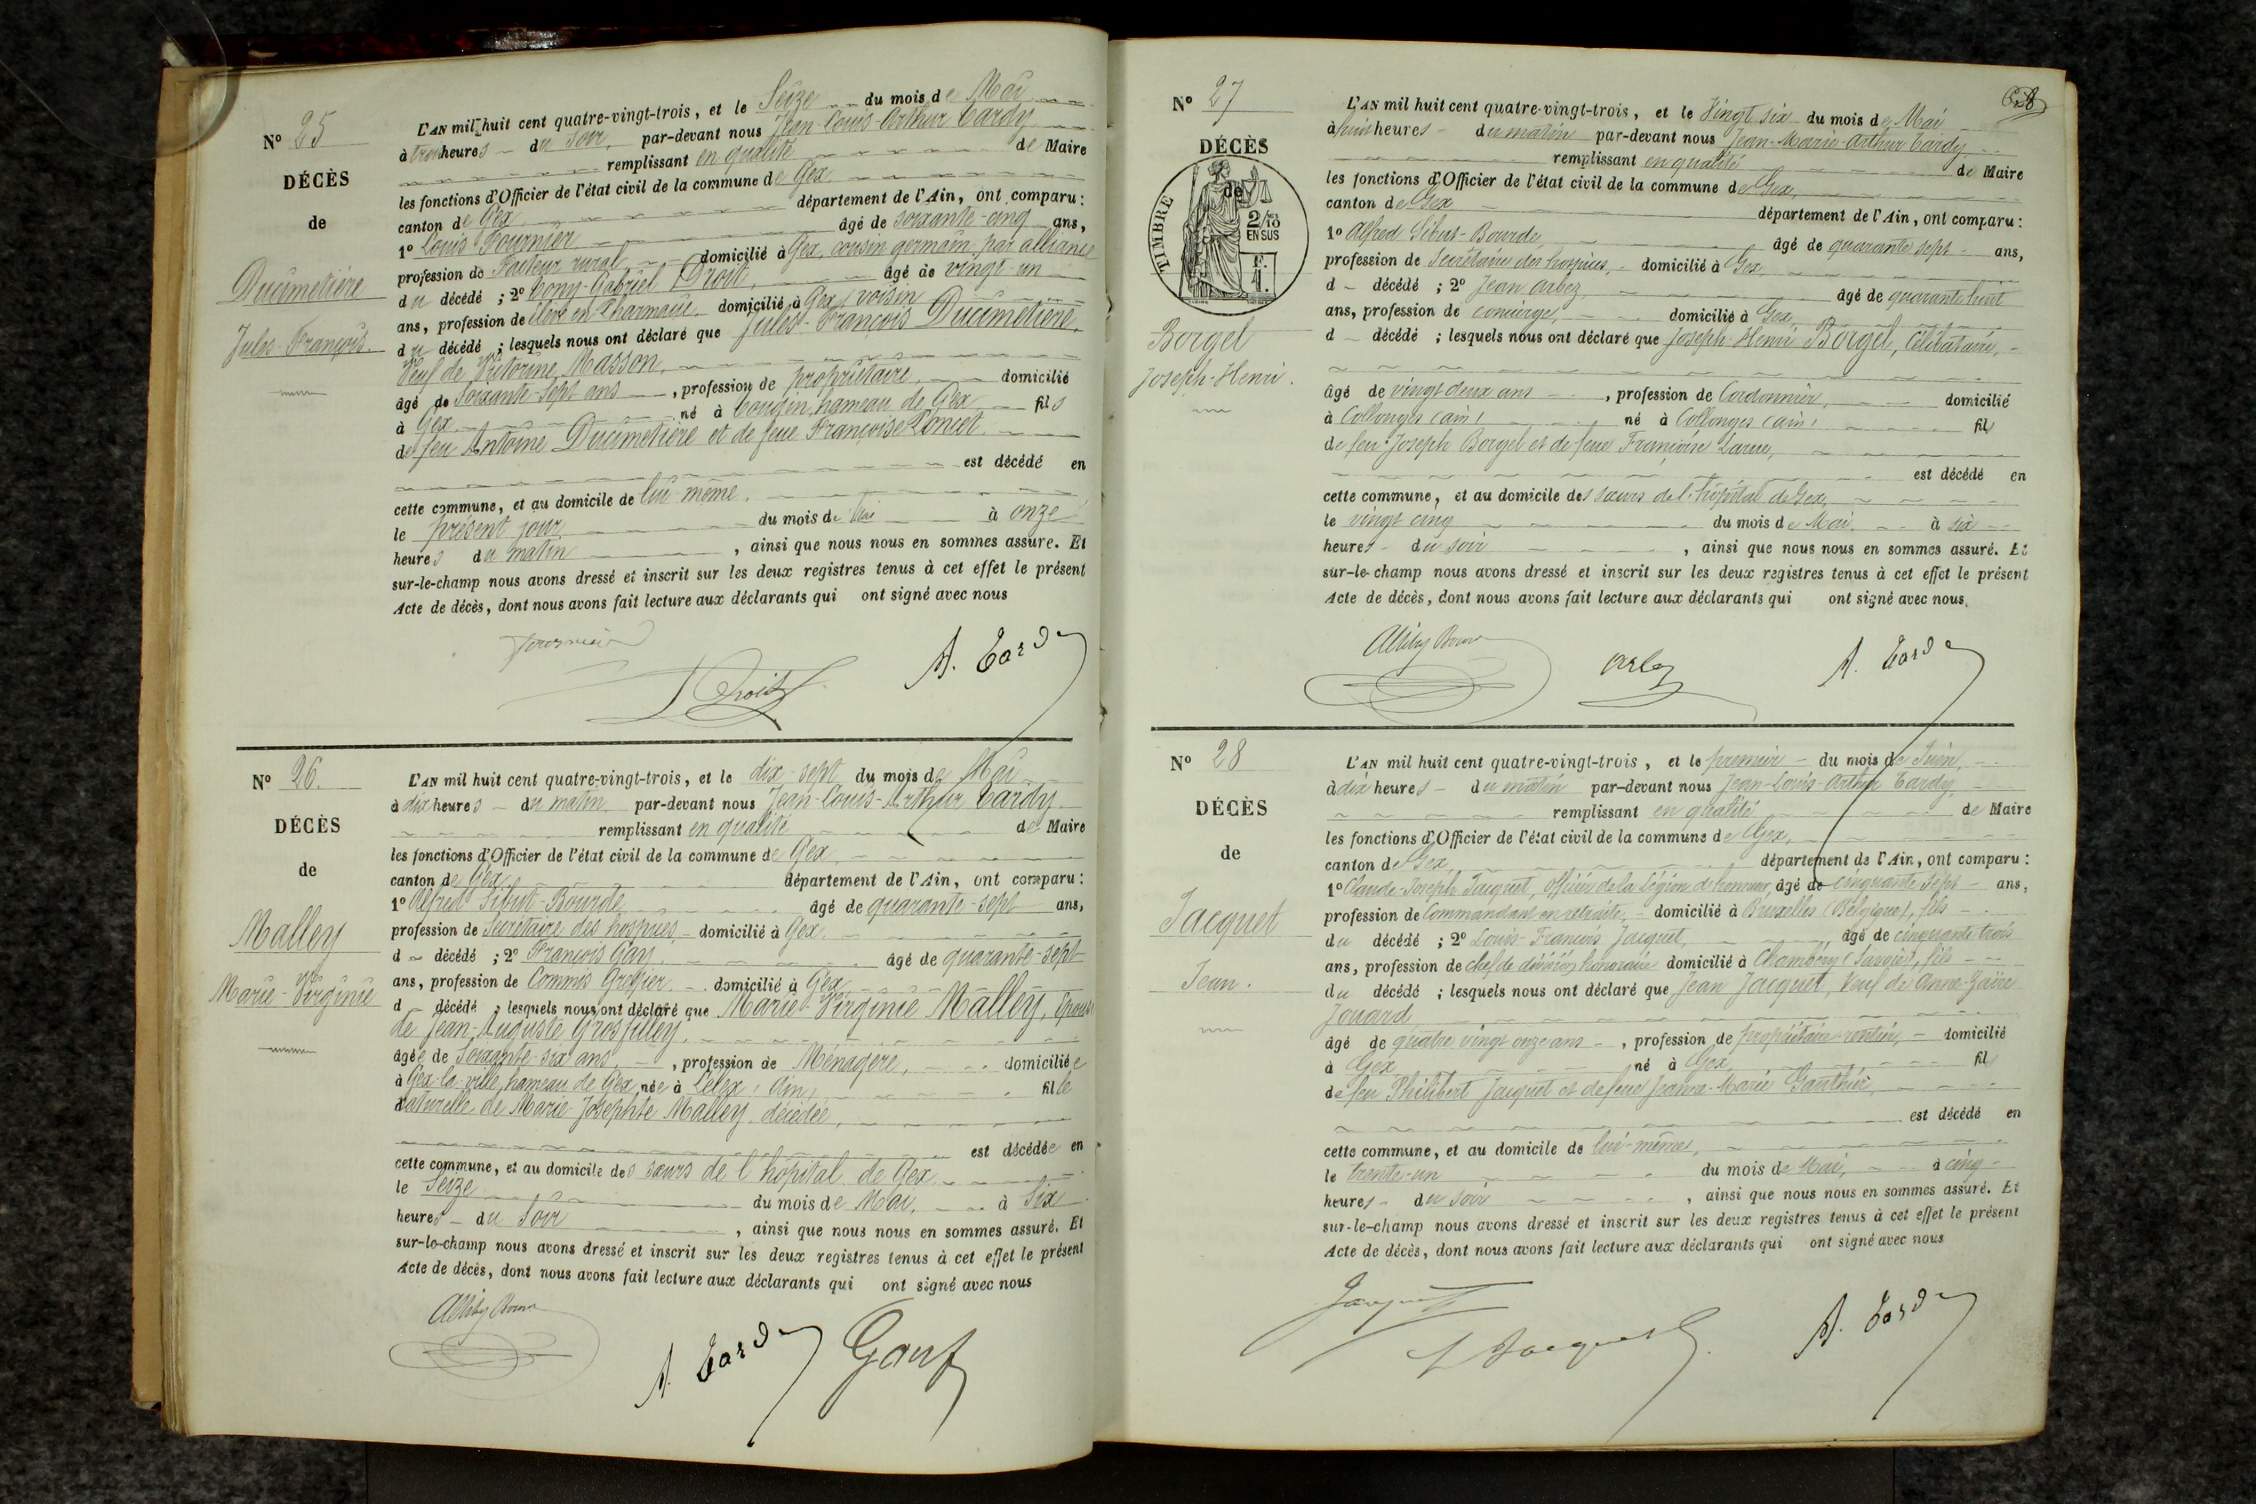 Nº 25
DÉCÈS
de
Ducimetière
Jules-François.
L'AN mil huit cent quatre-vingt-trois, et le Seize du mois de Mai
à trois heures du soir, par-devant nous Jean-Louis-Arthur Tardy
remplissant en qualité de Maire
les fonctions d'Officier de l'état civil de la commune de Gex
canton de Gex département de l'Ain, ont comparu :
1º Louis Fournier âgé de soixante-cinq ans,
profession de Facteur rural domicilié à Gex, cousin germain par alliance
du décédé ; 2º Cony-Gabriel Droit, âgé de vingt-un
ans, profession de élève en Pharmacie domicilié à Gex, voisin
du décédé ; lesquels nous ont déclaré que Jules-François Ducimetière,
Veuf de Victorine Masson,
âgé de Soixante-sept ans, profession de propriétaire, domicilié
à Gex né à Tougin, hameau de Gex fils
de feu Antoine Ducimetière et de feue Françoise Poncet
est décédé en
cette commune, et au domicile de lui-même,
le présent jour du mois de Mai à onze
heures du matin, ainsi que nous nous en sommes assuré. Et
sur-le-champ nous avons dressé et inscrit sur les deux registres tenus à cet effet le présent
Acte de décès, dont nous avons fait lecture aux déclarants qui ont signé avec nous
Fournier
Droit
A. Tardy
Nº 26.
DÉCÈS
de
Malley
Marie-Virginie
L'AN mil huit cent quatre-vingt-trois, et le dix-sept du mois de Mai
à dix heures du matin par-devant nous Jean-Louis-Arthur Tardy
remplissant en qualité de Maire
les fonctions d'Officier de l'état civil de la commune de Gex
canton de Gex département de l'Ain, ont comparu :
1º Alfred Sibut-Bourde âgé de quarante-sept ans,
profession de Secrétaire des hospices domicilié à Gex
d décédé ; 2º François Gay âgé de quarante-sept
ans, profession de Commis Greffier domicilié à Gex
d décédé ; lesquels nous ont déclaré que Marie-Virginie Malley, Epouse
de Jean-Auguste Grosfilley,
âgée de Soixante-six ans, profession de Ménagère, domiciliée
à Gex-la-ville, hameau de Gex née à Lélex, Ain, fille
naturelle de Marie Josephte Malley, décédée,
est décédée en
cette commune, et au domicile des sœurs de l'hôpital de Gex
le Seize du mois de Mai, à Six
heures du Soir, ainsi que nous nous en sommes assuré. Et
sur-le-champ nous avons dressé et inscrit sur les deux registres tenus à cet effet le présent
Acte de décès, dont nous avons fait lecture aux déclarants qui ont signé avec nous
A. Tardy
Gay
Nº 27
DÉCÈS
de
TIMBRE
2/10 ES
EN SUS
Borgel
Joseph-Henri.
L'AN mil huit cent quatre-vingt-trois, et le Vingt six du mois de Mai
à huit heures du matin par-devant nous Jean-Marie-Arthur Tardy
remplissant en qualité de Maire
les fonctions d'Officier de l'état civil de la commune de Gex,
canton de Gex département de l'Ain, ont comparu :
1º Alfred Sibut-Bourde, âgé de quarante sept ans,
profession de Secrétaire des hospices, domicilié à Gex
d décédé ; 2º Jean Arbez, âgé de quarante huit
ans, profession de concierge, domicilié à Gex,
d décédé ; lesquels nous ont déclaré que Joseph-Henri Borgel, célibataire,
âgé de vingt deux ans, profession de Cordonnier, domicilié
à Collonges (ain) né à Collonges (ain) fils
de feu Joseph Borgel et de feue Françoise Larue,
est décédé en
cette commune, et au domicile des sœurs de l'hôpital de Gex,
le vingt cinq du mois de Mai, à six
heures du soir, ainsi que nous nous en sommes assuré. Et
sur-le-champ nous avons dressé et inscrit sur les deux registres tenus à cet effet le présent
Acte de décès, dont nous avons fait lecture aux déclarants qui ont signé avec nous.
Arbez
A. Tardy
Nº 28
DÉCÈS
de
Jacquet
Jean.
L'AN mil huit cent quatre-vingt-trois, et le premier du mois de Juin,
à dix heures du matin par-devant nous Jean-Louis-Arthur Tardy,
remplissant en qualité de Maire
les fonctions d'Officier de l'état civil de la commune de Gex,
canton de Gex, département de l'Ain, ont comparu :
1º Claude-Joseph Jacquet, officier de la Légion d'honneur, âgé de cinquante sept ans,
profession de Commandant en retraite, domicilié à Bruxelles (Belgique), fils
du décédé ; 2º Louis-François Jacquet, âgé de cinquante trois
ans, profession de chef de division honoraire domicilié à Chambéry (Savoie), fils
du décédé ; lesquels nous ont déclaré que Jean Jacquet, Veuf de Anne-Zaïre
Jouard
âgé de quatre vingt onze ans, profession de propriétaire-rentier, domicilié
à Gex né à Gex, fils
de feu Philibert Jacquet et de feue Jeanne-Marie Gauthier,
est décédé en
cette commune, et au domicile de lui-même,
le trente-un du mois de Mai, à cinq
heures du soir, ainsi que nous nous en sommes assuré. Et
sur-le-champ nous avons dressé et inscrit sur les deux registres tenus à cet effet le présent
Acte de décès, dont nous avons fait lecture aux déclarants qui ont signé avec nous
Jacquet
L Jacquet
A. Tardy